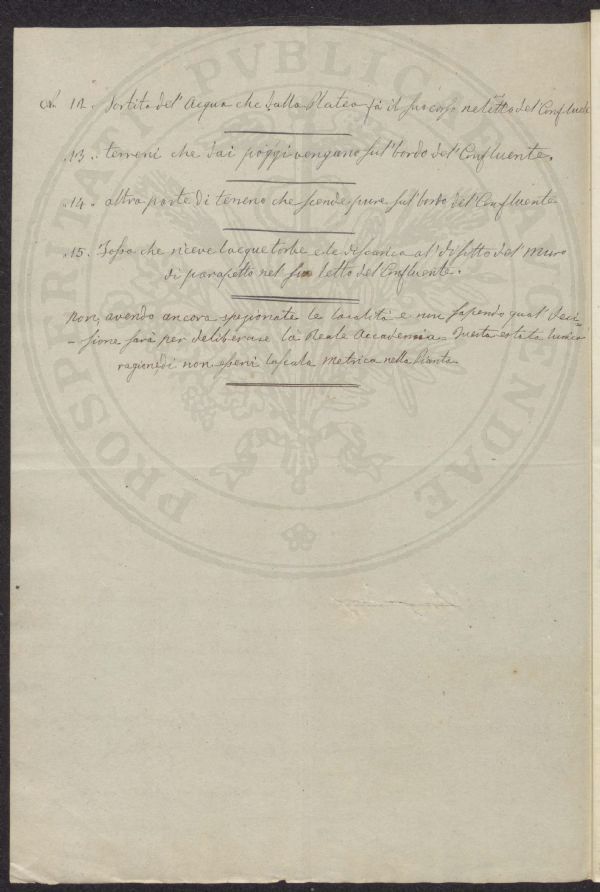 N. 12. Sortita del' Acqua che dalla Platea fà il suo corso nel letto del Confluente
.13.. terreni che dai poggi vengano sul' bordo del' Confluente.
.14.. altra parte di terreno che scende pure sul' bordo del' Confluente
.15. Fossa che riceve l'acque torbe e le discarica al' disotto del' Muro
di parapetto nel suo letto del Confluente.
Non, avendo ancora spezionate le località e non sapendo qual' deci-
- sione sarà per deliberare la Reale Accademia = Questa è stata l'unica
ragione di non esservi la scala Metrica nella Pianta
PROSPERITATI PVBLICAE AVGENDAE